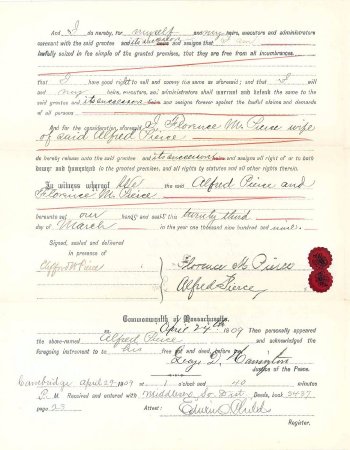 And I do hereby, for myself and my heirs, executors and administrators
covenant with the said grantee and its successors heirs and assigns that I am
lawfully seized in fee simple of the granted premises, that they are free from all incumbrances,
that I have good right to sell and convey the same as aforesaid; and that I will
and my heirs, executors, and administrators shall warrant and defend the same to the
said grantee and its successors heirs and assigns forever against the lawful claims and demands
of all persons
And for the consideration aforesaid I, Florence M. Pierce wife
of said Alfred Pierce
do hereby release unto the said grantee and its successors heirs and assigns all right of or to both
dower and homestead in the granted premises, and all rights by statutes and all other rights therein.
In witness whereof We the said Alfred Pierce and
Florence M. Pierce
hereunto set our hands and seals this twenty third
day of March in the year one thousand nine hundred and nine.
Signed, sealed and delivered
in presence of
Clifford W Pierce
Florence M. Pierce
Alfred Pierce
Commonwealth of Massachusetts.
April 27th 1909 Then personally appeared
the above-named Alfred Pierce and acknowledged the
foregoing instrument to be his free act and deed, before me
Justice of the Peace.
Cambridge April 29 1909 at 1 o'clock and 40 minutes
P. M. Received and entered with Middlesex So. Dist. Deeds, book 3437
page 23 Attest: Edwin O. Childs
Register.